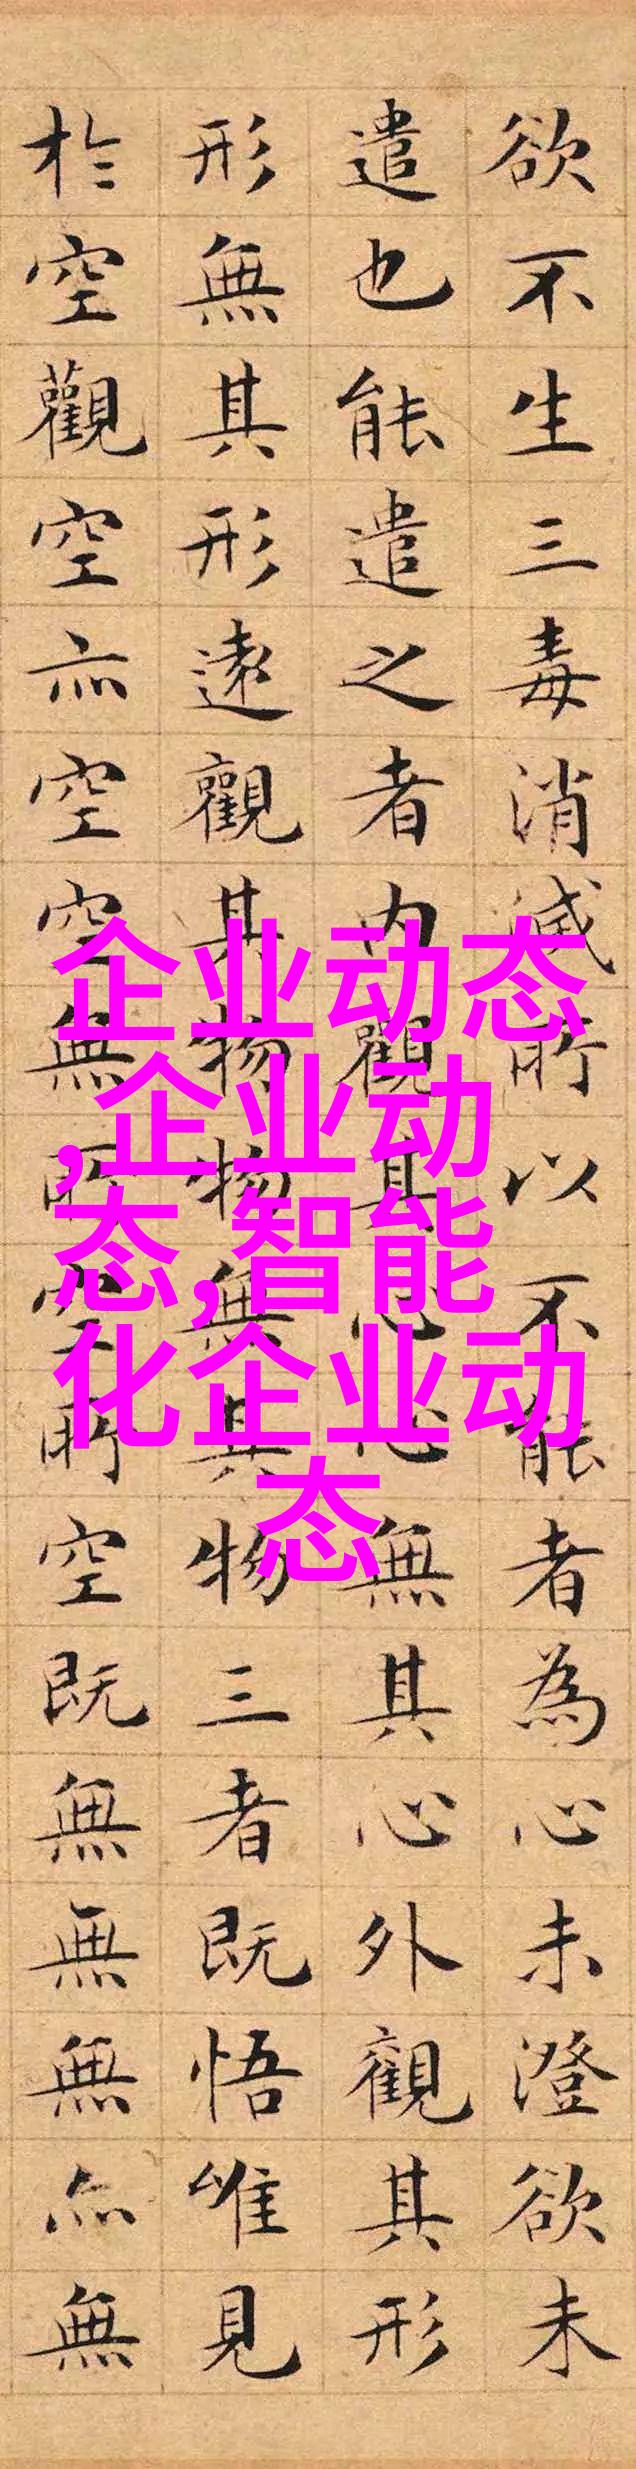 欲不生三毒消滅所以不能者為心未澄欲未
遣也能遣之者内觀其心心無其心外觀其形
形無其形遠觀其物物無其物三者既悟唯見
於空觀空亦空空無所空所空既無無無亦無
企业动态
,企业动
态,智能
化企业动
态